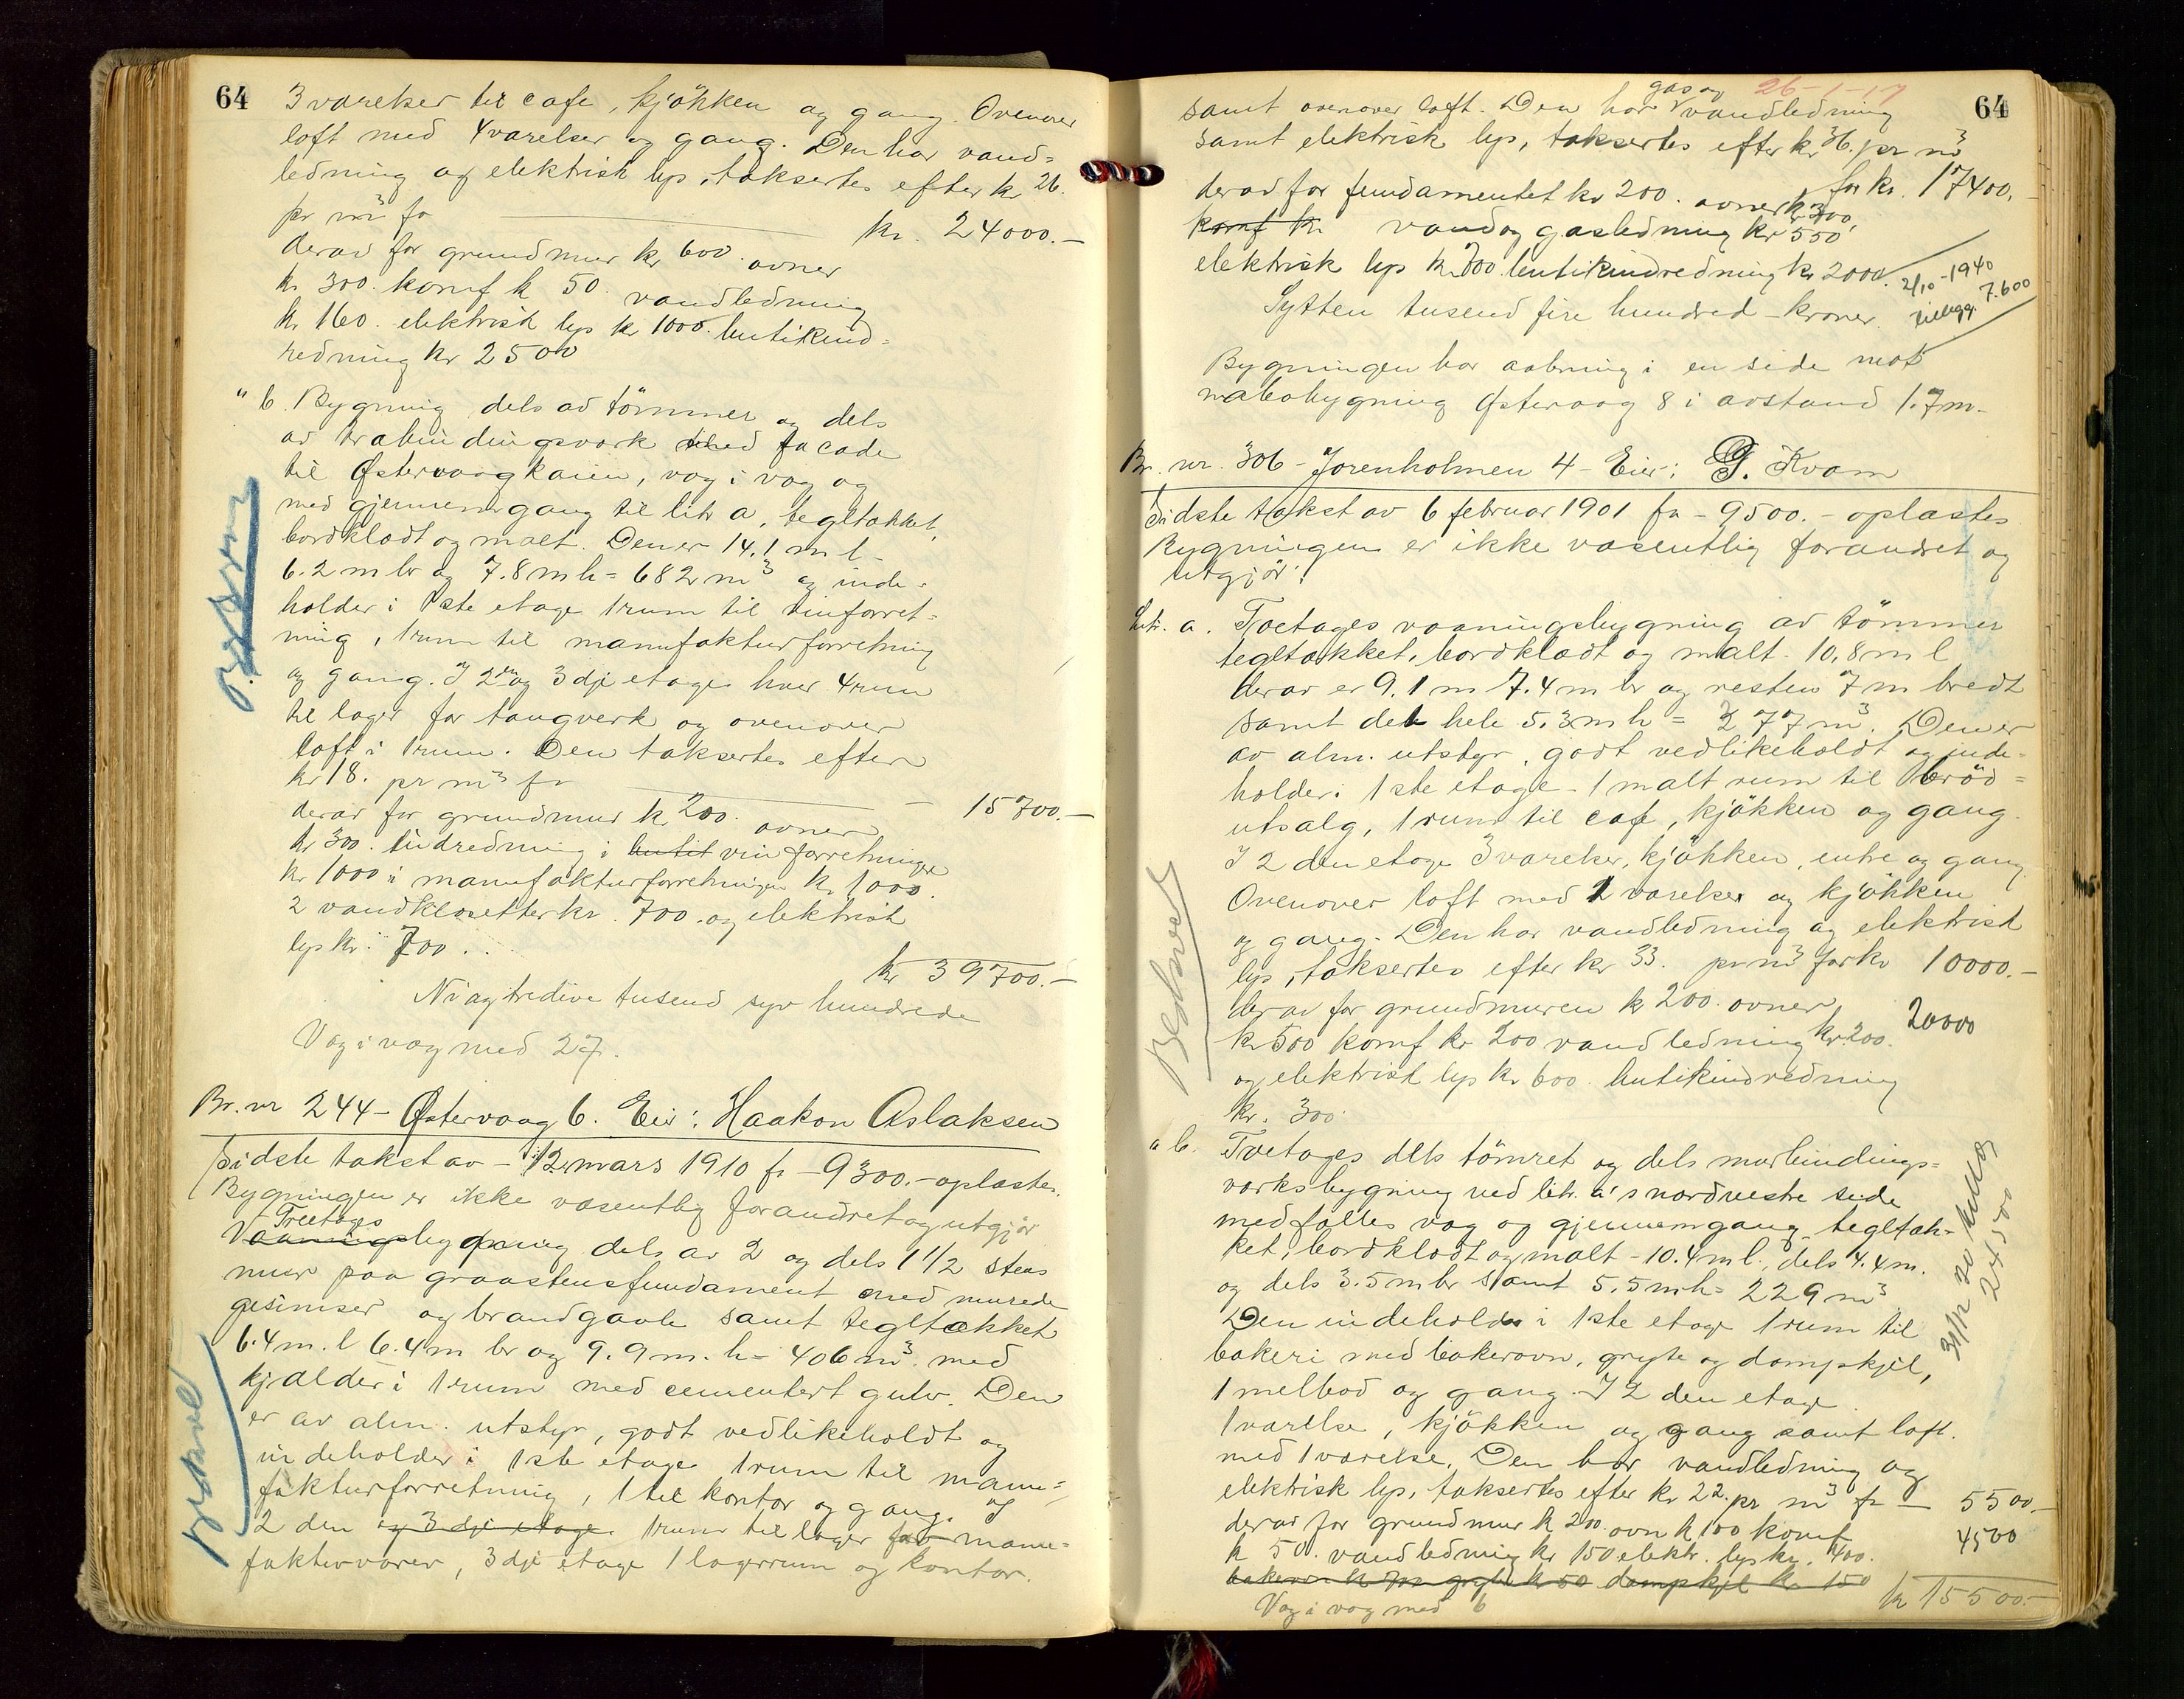 64
3 værelser til cafe, kjökken og gang. Ovenover
loft med 4 værelser og gang. Den har vand=
ledning og elektrisk lys, taksertes efter kr 26.
pr m³ for kr. 24000.-
derav for grundmur kr 600. ovner
kr 300. komf k 50. vandledning
kr 160. elektrisk lys kr 1000. butikind=
redning kr 2500
" b. Bygning dels av tömmer og dels
av utbindingsverk med facade
til Østervaagkaien, væg i væg og
med gjennemgang til litr a, tegltækket,
bordklædt og malt. Den er 14.1 m l-
6.2 m br og 7.8 m h = 682 m³ og inde-
holder i 1ste etage 1 rum til vinforret-
ning, 1 rum til manufakturforretning
og gang. I 2den og 3dje etage hver 4 rum
til lager for taugverk og ovenover
loft i 1 rum. Den taksertes efter
kr 18. pr m³ for - 15700.-
derav for grundmur kr 200. ovner
kr 300. indredning i butik vinforretningen
kr 1000 i manufakturforretningen kr 1000.
2 vandklosetter kr. 700. og elektrisk
lys kr. 700...
kr 39700.-
Ni og tredive tusend syv hundrede
Væg i væg med 27.
Br. nr 244 - Østervaag 6. Eier: Haakon Aslaksen
Sidste takst av - 12 mars 1910 fr - 9300.- oplæstes.
Bygningen er ikke væsentlig forandret og utgjør
Treetages
Vaaningsbygning dels av 2 og dels 1 1/2 stens
mur paa graastensfundament med murede
gesimser og brandgavle samt tegltækket
6.4 m. l 6.4 m br og 9.9 m. h = 406 m³ med
kjælder i 1 rum med cementert gulv. Den
er av alm. utstyr, godt vedlikeholdt og
indeholder i 1ste etage 1 rum til manu=
fakturforretning, 1 til kontor og gang. I
2 den og 3 dje etage 1 rum til lager for manu=
fakturvarer, 3 dje etage 1 lagerrum og kontor.
64
26-1-17
gas og
samt ovenover loft. Den har vandledning
samt elektrisk lys, taksertes efter kr 36. pr m³
for kr. 17400.-
derav for fundamentet kr 200. ovner kr 300,
komf kr vand og gasledning kr 550
elektrisk lys kr 700. butikindredning kr 2000.
2/10-1940
tillegg. 7.600
Sytten tusend fire hundred kroner.
Bygningen har aabning i en side mot
nabobygning Østervaag 8 i avstand 1.7 m.
Br. nr. 306 - Jorenholmen 4 - Eier: G. Kvam
Sidste takst av 6 februar 1901 fr - 9500.- oplæstes
Bygningen er ikke væsentlig forandret og
utgjör:
Litr. a. Toetages vaaningsbygning av tömmer
tegltækket, bordklædt og malt. 10.8 m l
derav er 9.1 m 7.4 m br og resten 7 m bredt
samt det hele 5.3 m h = 277 m³. Den er
av alm. utstyr, godt vedlikeholdt og inde-
holder i 1ste etage - 1 malt rum til bröd=
utsalg, 1 rum til cafe, kjökken og gang.
I 2 den etage 3 værelser, kjökken, entre og gang
Ovenover loft med 2 værelser og kjökken
og gang. Den har vandledning og elektrisk
lys, taksertes efter kr 33. pr m³ for kr 10000.-
derav for grundmuren kr 200. ovner
20000
kr 500 komf kr 200 vandledning kr 200.
og elektrisk lys kr 600. butikindredning
kr. 300.
" b. Toetages dels tömret og dels murbindings=
verksbygning ved litr. a's nordvestre side
med fælles væg og gjennemgang, tegltæk-
ket, bordklædt og malt - 10.4 m l., dels 4.4 m.
og dels 3.5 m br samt 5.5 m h = 229 m³
Den indeholder i 1ste etage 1 rum til
bakeri med bakerovn, gryte og dampkjel,
1 melbod og gang. I 2 den etage
1 værelse, kjökken og gang samt loft
med 1 værelse. Den har vandledning og
elektrisk lys, taksertes efter kr 22. pr m³ fr - 5500.-
derav for grundmur k 200. ovn k 100 komf
4500
k 50. vandledning kr 150 elektr. lys kr. 400.
bakerovn kr 700 gryte k 50 dampkjel kr 150
kr 15500.-
Væg i væg med 6
24500